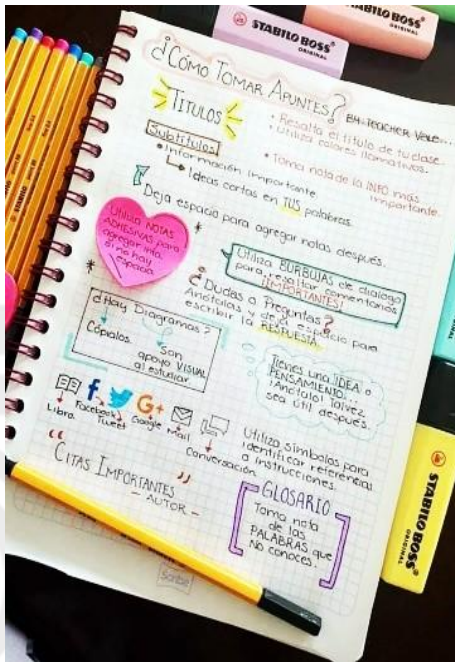 STABILO BOSS
ORIGINAL
STABILO BOSS
ORIGINAL
¿CÓMO TOMAR APUNTES?
BY: TEACHER
TITULOS
• Resalta el título de tu clase
• utiliza colores llamativos.
Subtítulos
• Información importante
Ideas cortas en TUS palabras.
• Toma nota de la INFO más
importante.
Deja espacio para agregar notas después.
Utiliza NOTAS
ADHESIVAS para
agregar info.
si no hay
espacio
*
*
Utiliza BURBUJAS de dialogo
para resaltar comentarios
¡IMPORTANTES!
¿Dudas o Preguntas?
Anótalas y deja espacio para
escribir la RESPUESTA.
¿Hay Diagramas?
Cópialos.
Son
apoyo VISUAL
al estudiar
Tienes una IDEA o
PENSAMIENTO...
¡Anótalo! Talvez
sea útil después.
f
G+
Libro.
Facebook
Tweet
Google
Mail
Conversación.
Utiliza símbolos para
identificar referencias
o instrucciones.
"CITAS IMPORTANTES"
- AUTOR -
GLOSARIO
Toma nota
de las
PALABRAS que
NO conoces.
STABILO BOSS
ORIGINAL
Scribe